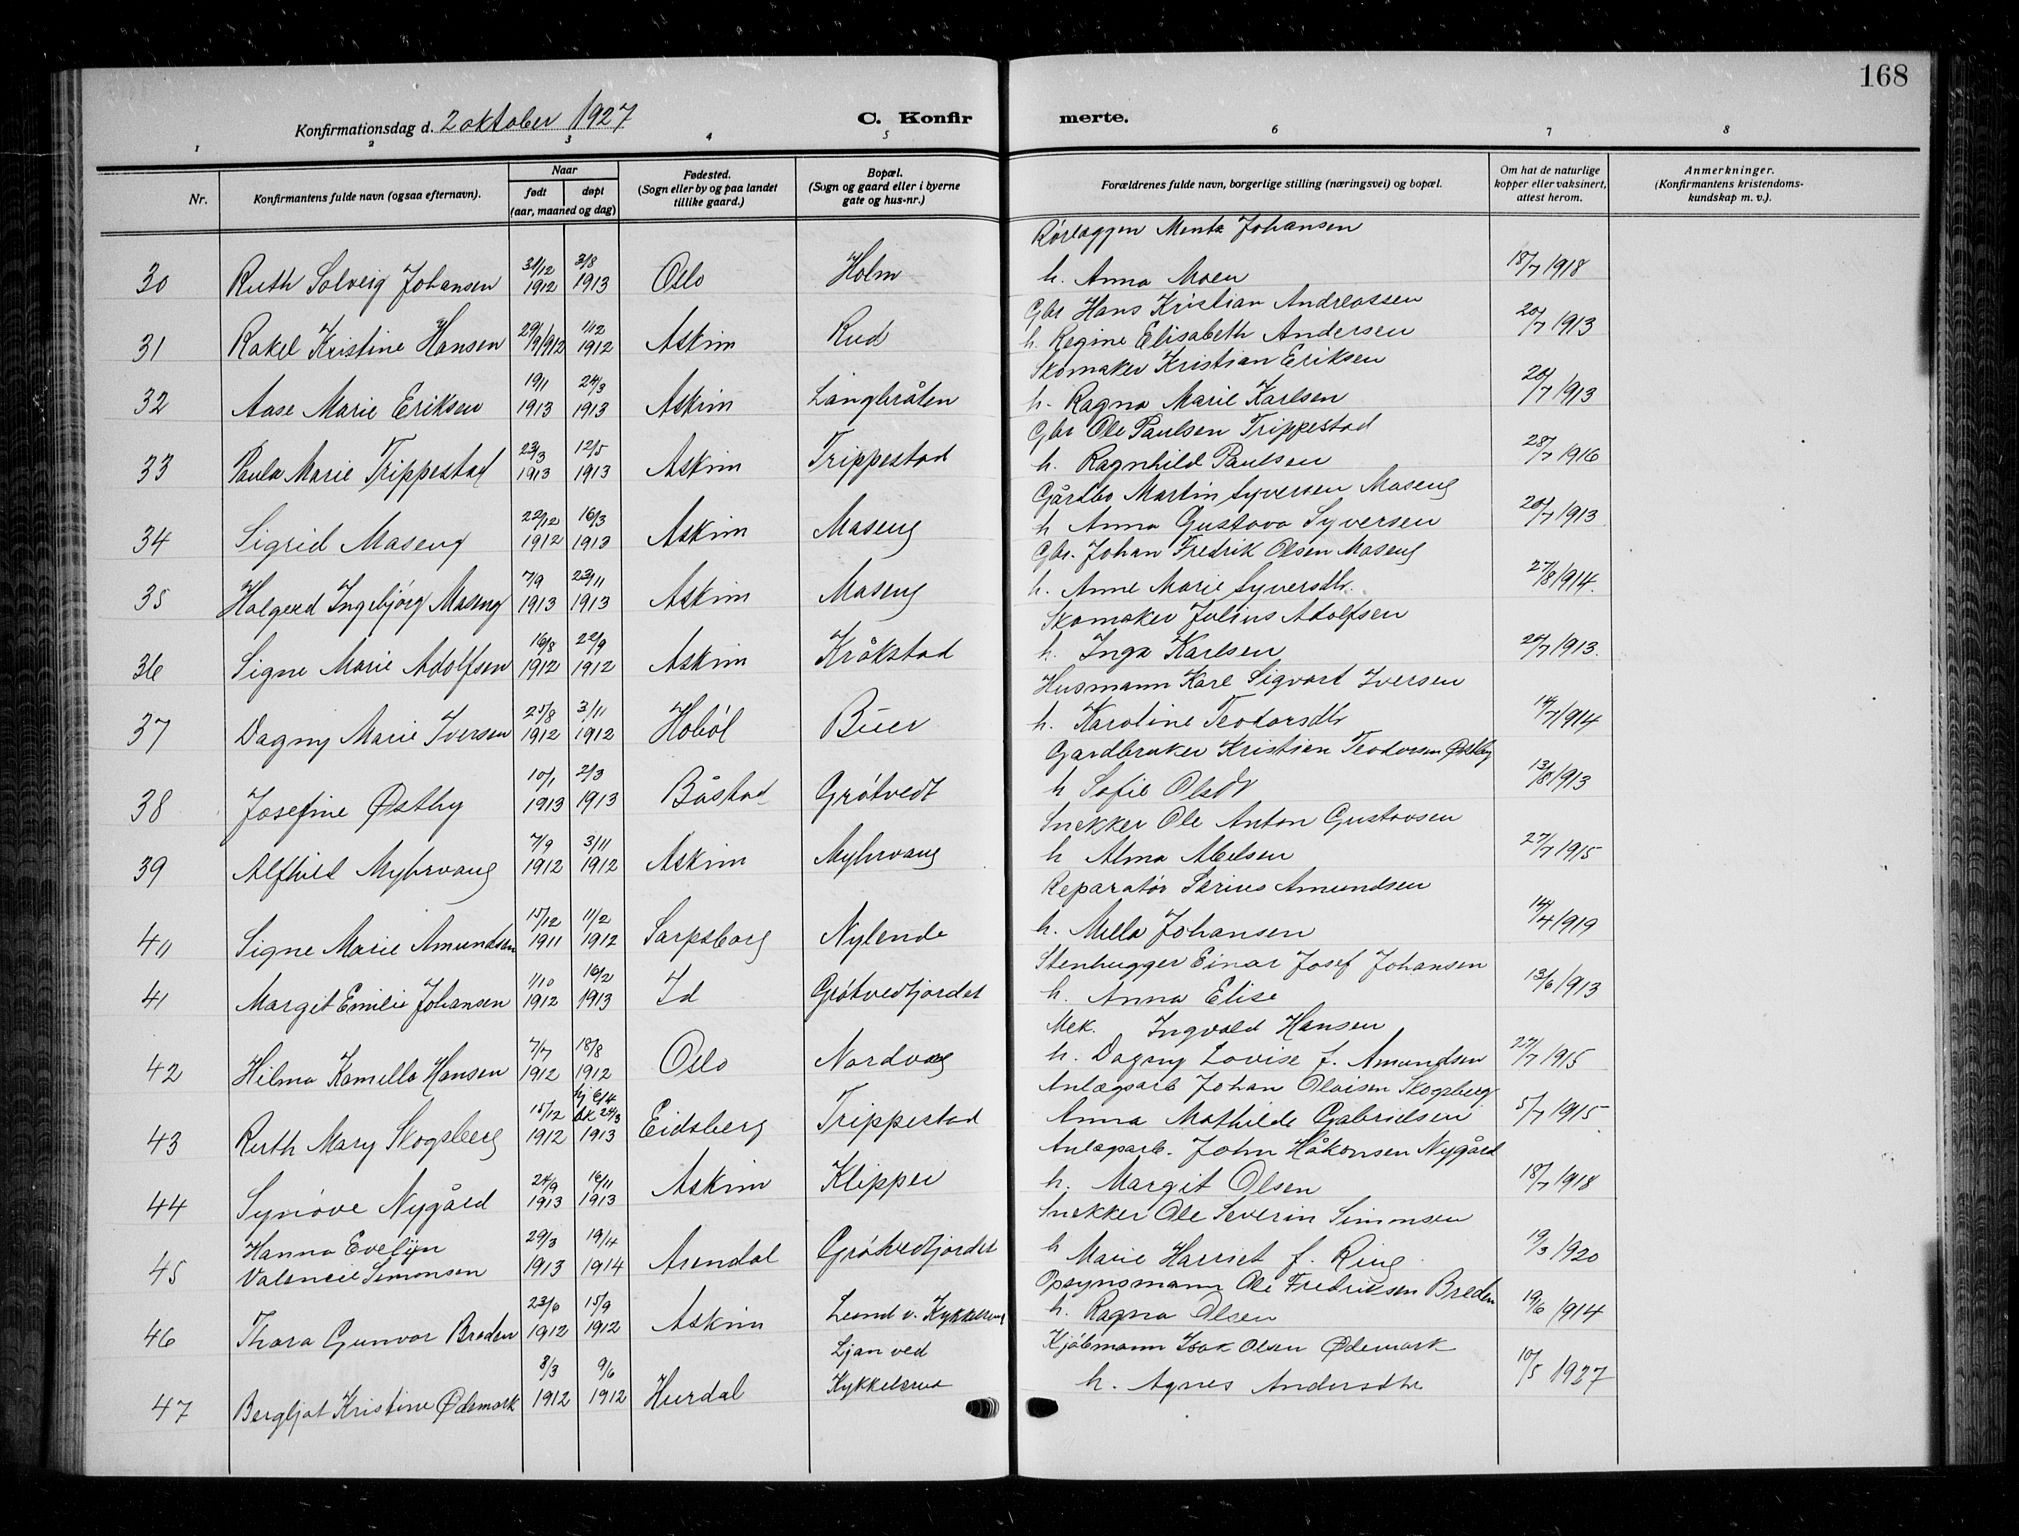 168
Konfirmationsdag d. 2 oktober 1927
C. Konfir merte.
1 2 3 4 5 6 7 8
Nr.
Konfirmantens fulde navn (ogsaa efternavn).
Naar
født døpt
(aar, maaned og dag)
Fødested.
(Sogn eller by og paa landet
tillike gaard.)
Bopæl.
(Sogn og gaard eller i byerne
gate og hus-nr.)
Forældrenes fulde navn, borgerlige stilling (næringsvei) og bopæl.
Om hat de naturlige
kopper eller vaksinert,
attest herom.
Anmerkninger.
(Konfirmantens kristendoms-
kundskap m. v.).
Rørlæggen Johansen
30 Ruth Solveig Johansen 31/12 1912 3/8 1913 Oslo Holm h. Anna Moen 18/7 1918
Gbr Hans Kristian Andreassen
31 Rakel Kristine Hansen 29/9 1912 1/12 1912 Askim Rud h. Regine Elisabeth Andersen 20/7 1913
Skomaker Kristian Eriksen
32 Aase Marie Eriksen 19/1 1913 24/3 1913 Askim Langbråten h. Ragna Marie Karlsen 20/7 1913
Gbr Ole Paulsen Trippestad
33 Paula Marie Trippestad 23/3 1913 12/5 1913 Askim Trippestad h. Ragnhild Paulsen 28/7 1916
Gårdbr Martin Syversen Maseng
34 Sigrid Maseng 22/12 1912 16/3 1913 Askim Maseng h Anna Gustava Syversen 20/7 1913
Gbr. Johan Fredrik Olsen Maseng
35 Holgerd Ingebjørg Maseng 7/9 1913 23/11 1913 Askim Maseng h. Anne Marie Syversdtr. 27/8 1914.
Skomaker Julius Adolfsen
36 Signe Marie Adolfsen 16/8 1912 22/9 1912 Askim Kråkstad h. Inga Karlsen 20/7 1913.
Husmann Karl Sigvart Iversen
37 Dagny Marie Iversen 25/8 1912 3/11 1912 Hobøl Buer h. Karoline Teodorsdtr 14/7 1914
Gardbruker Kristian Teodorsen Østby
38 Josefine Østby 10/1 1913 2/3 1913 Båstad Grøtvedt h Sofie Olsdtr 13/8 1913
Snekker Ole Anton Gustavsen
39 Alfhild Myhrvang 7/9 1912 3/11 1912 Askim Myhrvang h Alma Abelsen 27/7 1915
Reparatør Serius Amundsen
40 Signe Marie Amundsen 15/12 1911 11/2 1912 Sarpsborg Nylende h. Mella Johansen 14/4 1919
Stenhugger Einar Josef Johansen
41 Margit Emilie Johansen 1/10 1912 16/2 1913 Id Grøtvedtjordet h. Anna Elise 13/6 1913
Mek. Ingvald Hansen
42 Hilma Kamella Hansen 7/7 1912 18/8 1912 Oslo Nordvang h. Dagny Lovise f. Amundsen 27/7 1915
Anlægsarb Johan Olaisen Skogsberg
43 Ruth Mary Skogsberg 15/12 1912 hj 6/4 bk 24/3 1913 Eidsberg Trippestad Anna Mathilde Gabrielsen 5/7 1915
Anlægsarb. John Håkonsen Nygård
44 Synøve Nygård 24/9 1913 16/11 1913 Askim Klippei h. Margit Olsen 18/7 1918
Snekker Ole Severin Simonsen
45 Hanna Evelyn
Valencie Simonsen 29/3 1913 19/4 1914 Arendal Grøtvedtjordet h Marie Harriet f. Ring 19/3 1920
Opsynsmann Ole Fredriksen Breden
46 Thora Gunvor Breden 23/6 1912 15/9 1912 Askim Lund v. Kykkelsrud h. Ragna Olsen 19/6 1914
Kjøbmann Isak Olsen Ødemark
47 Bergljot Kristine Ødemark 8/3 1912 9/6 1912 Hurdal Ljan ved
Kykkelsrud h. Agnes Andersdtr 10/5 1927